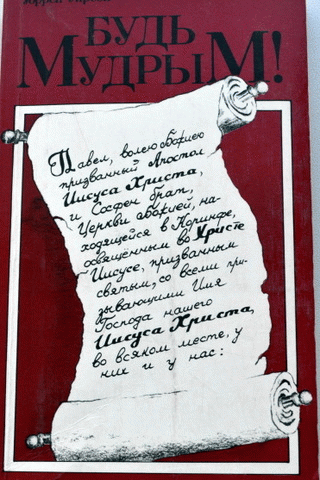 БУДЬ
МУДРЫМ!
Павел, волею Божиею
призванный Апостол
Иисуса Христа,
и Сосфен брат,
Церкви Божией, на-
ходящейся в Коринфе,
освященным во Христе
Иисусе, призванным
святым, со всеми при-
зывающими Имя
Господа нашего
Иисуса Христа,
во всяком месте, у
них и у нас: